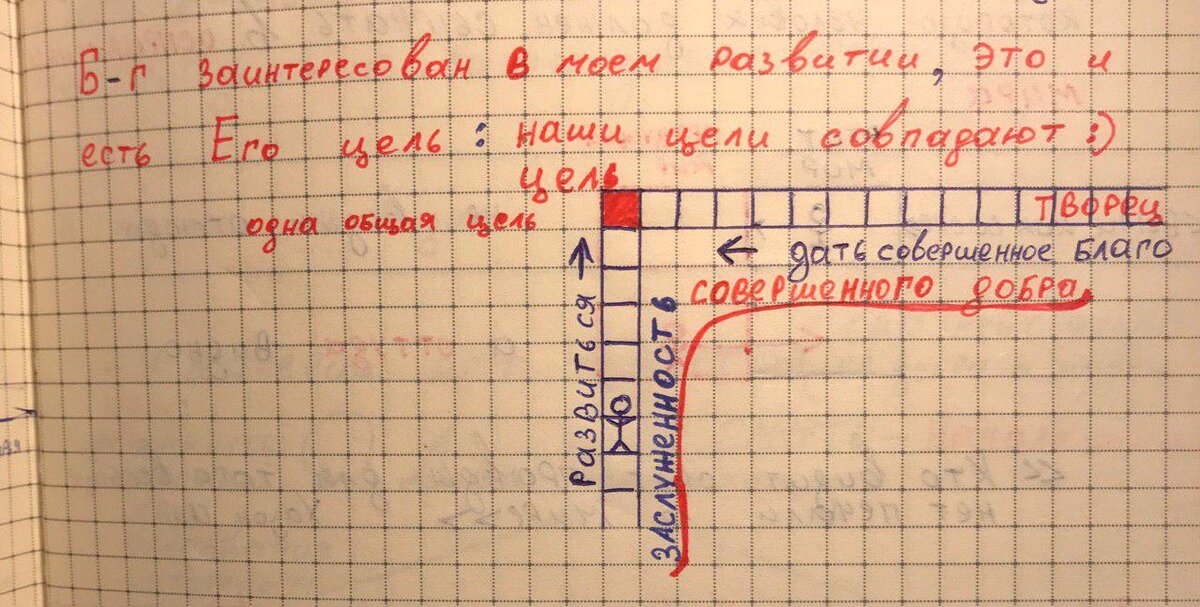 Б-г заинтересован в моем развитии, это и
есть Его цель: наши цели совпадают :)
цель
одна общая цель
ТВОРЕЦ
← дать совершенное благо
совершенного добра
развиться →
заслуженность